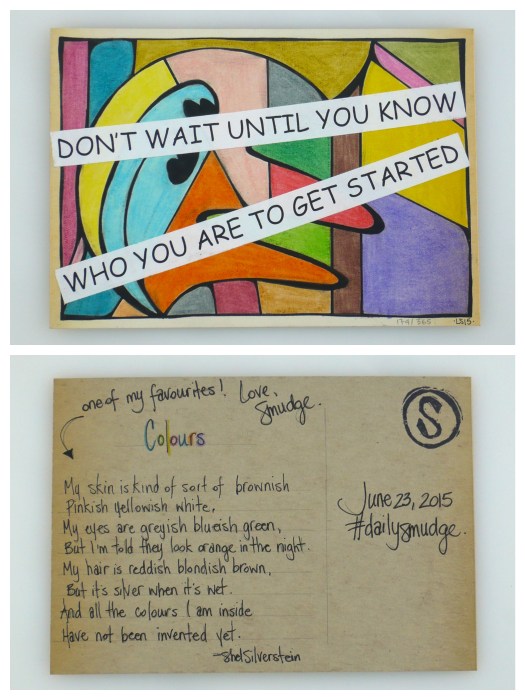 DON'T WAIT UNTIL YOU KNOW
WHO YOU ARE TO GET STARTED
174/365
one of my favourites! Love,
Smudge.
Colours
My skin is kind of sort of brownish
Pinkish yellowish white,
My eyes are greyish blueish green,
But I'm told they look orange in the night.
My hair is reddish blondish brown,
But it's silver when it's wet.
And all the colours I am inside
Have not been invented yet.
-Shel Silverstein
S
June 23, 2015
#dailysmudge.